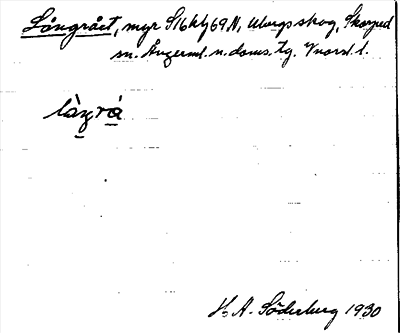 Långrået, myr S16hg69N, Ubergsskog, Skorped
sn. Ångerml. n. doms. tg. Vnorrl. l.
làŋrá
H. A. Söderberg 1930